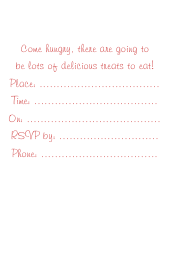 Come hungry, there are going to
be lots of delicious treats to eat!
Place: ...................................
Time: ....................................
On: .......................................
RSVP by: .............................
Phone: ..................................